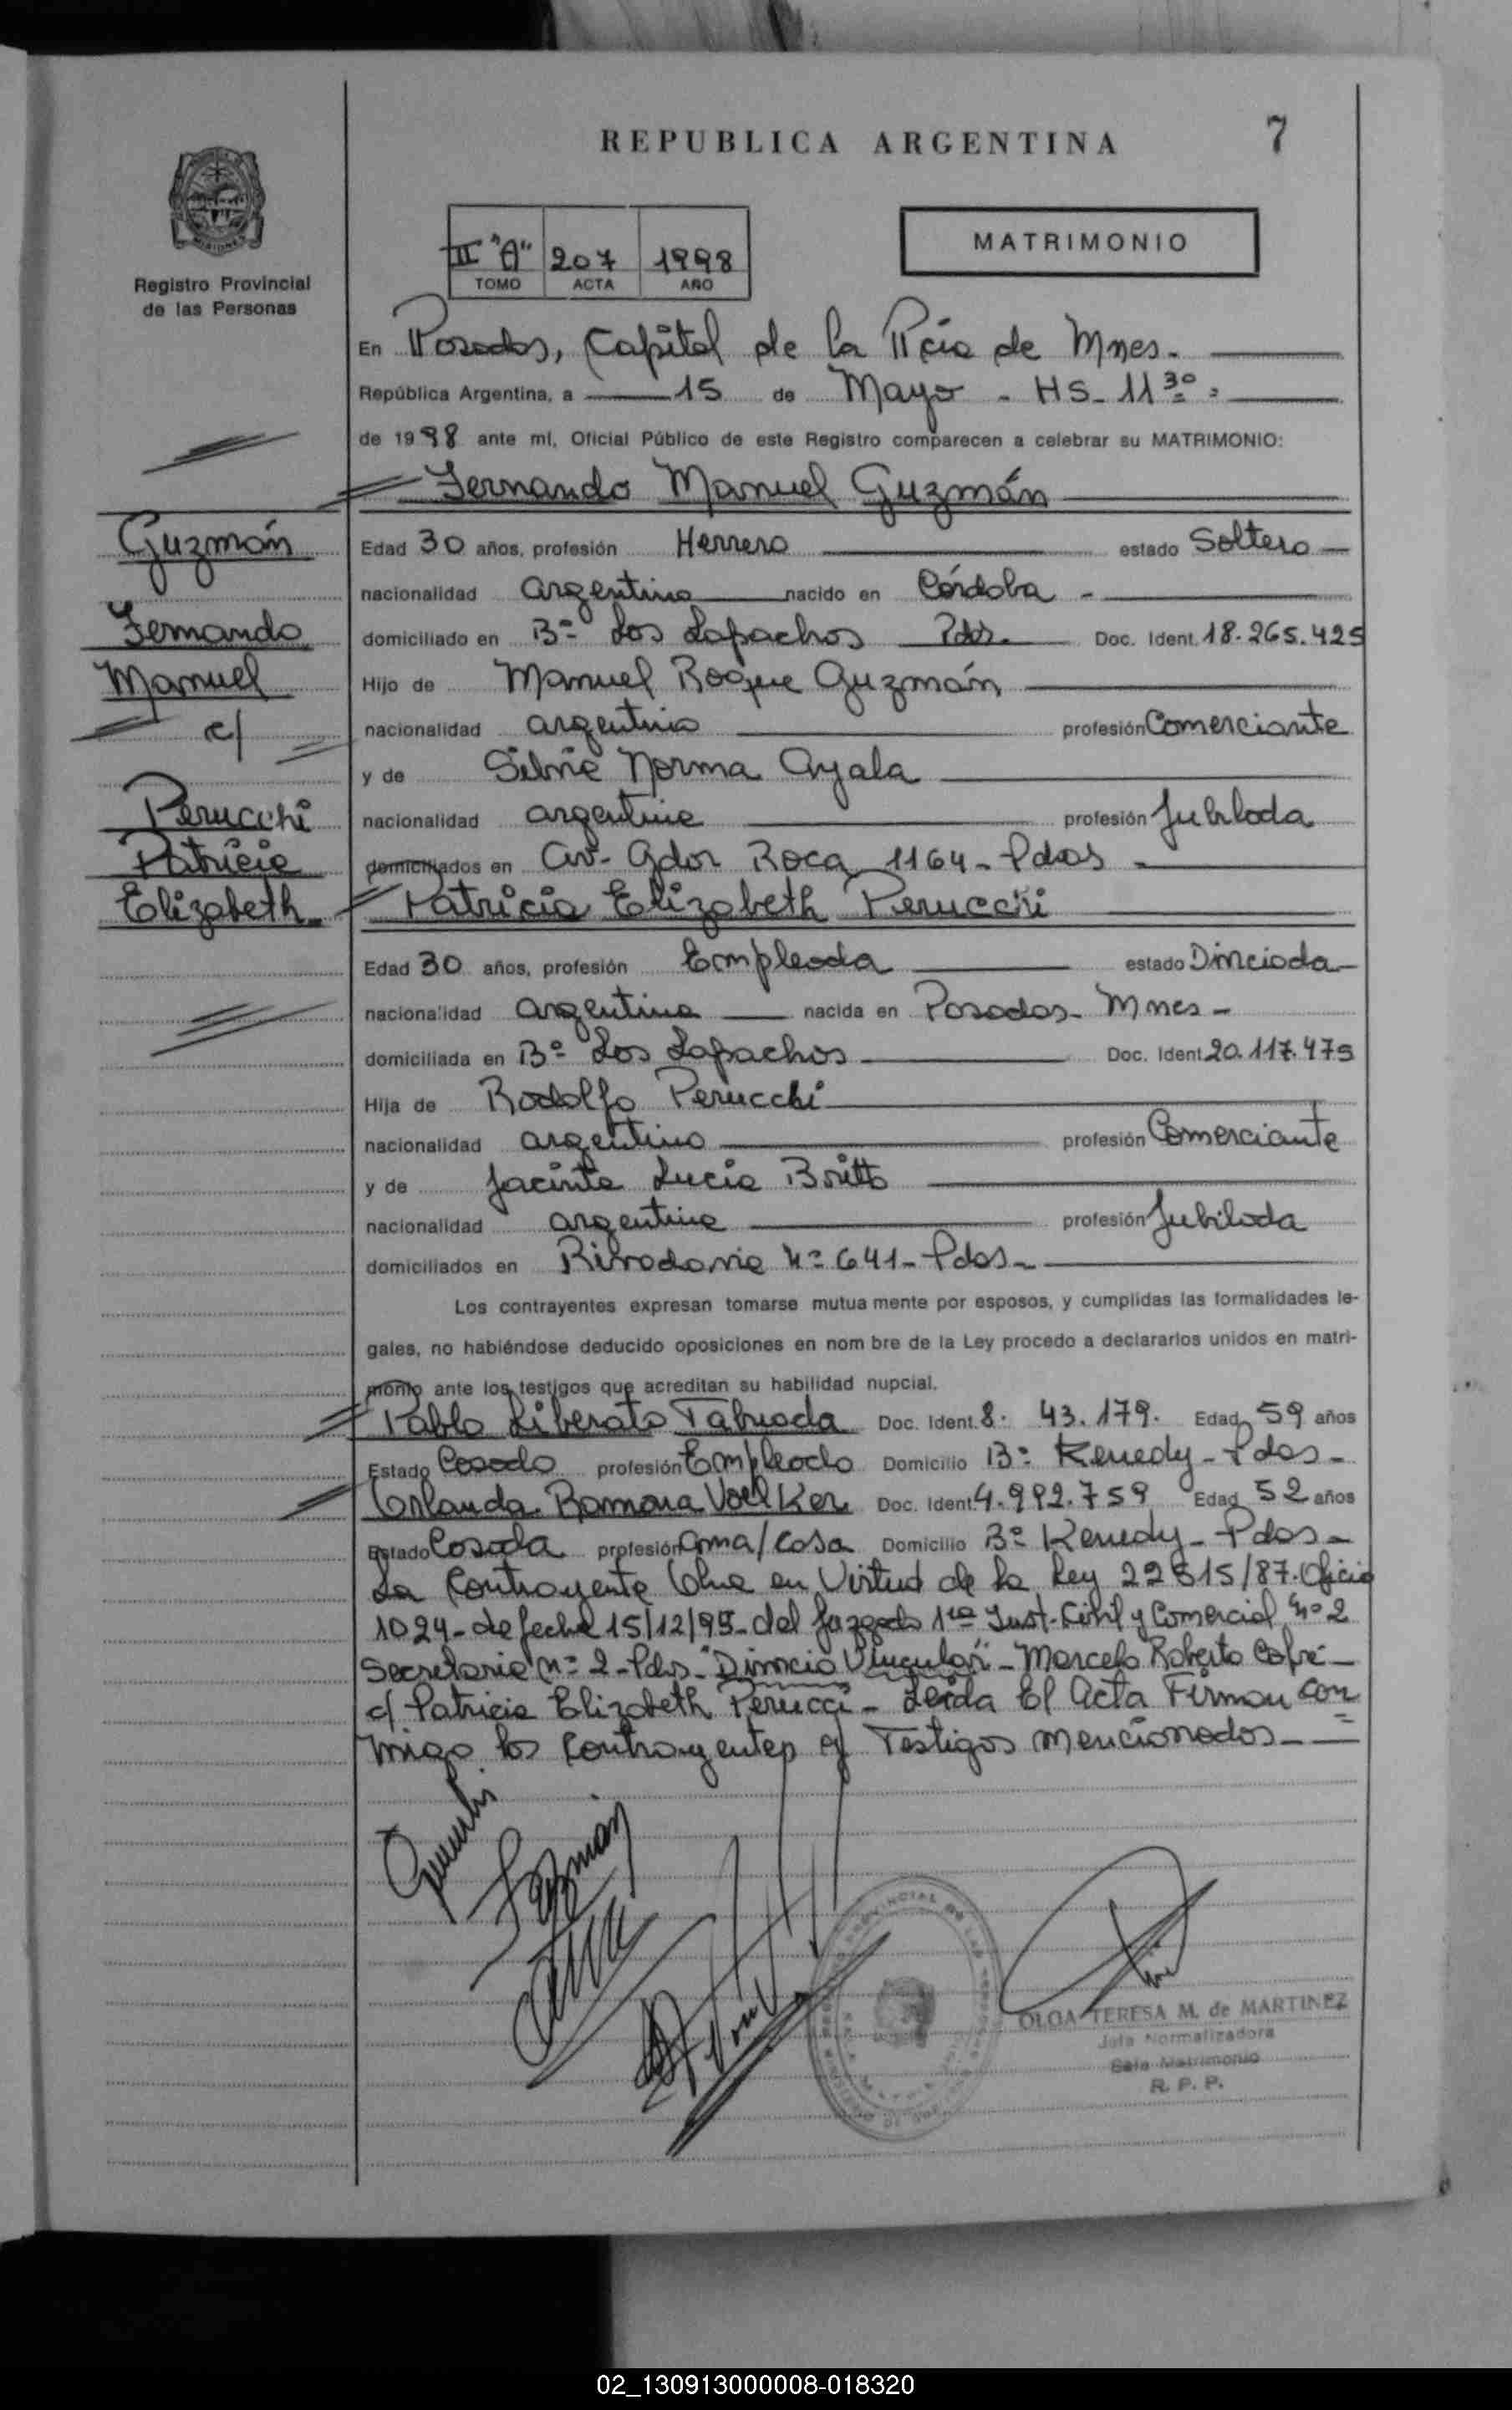 REPUBLICA ARGENTINA
7
II "A" 207 1998
TOMO ACTA AÑO
MATRIMONIO
Registro Provincial
de las Personas
En Posadas, Capital de la Pcia de Mnes.
República Argentina, a 15 de Mayo - HS- 11 30
de 1998 ante mi, Oficial Público de este Registro comparecen a celebrar su MATRIMONIO:
Fernando Manuel Guzmán
Guzmán
Fernando
Manuel
c/
Perucchi
Patricia
Elizabeth
Edad 30 años, profesión Herrero estado Soltero
nacionalidad argentino nacido en Córdoba -
domiciliado en Bº Los Lapachos Pdas. Doc. Ident. 18.265.425
Hijo de Manuel Roque Guzmán
nacionalidad argentino profesión Comerciante
y de Silvia Norma Ayala
nacionalidad argentina profesión Jubilada
domiciliados en Av- Gdor Roca 1164- Pdas -
Patricia Elizabeth Perucchi
Edad 30 años, profesión Empleada estado Divorciada
nacionalidad argentina nacida en Posadas- Mnes -
domiciliada en Bº Los Lapachos Doc. Ident. 20.117.479
Hija de Rodolfo Perucchi
nacionalidad argentino profesión Comerciante
y de Jacinta Lucia Britto
nacionalidad argentina profesión Jubilada
domiciliados en Rivadavia Nº 641- Pdas-
Los contrayentes expresan tomarse mutua mente por esposos, y cumplidas las formalidades le-
gales, no habiéndose deducido oposiciones en nom bre de la Ley procedo a declararlos unidos en matri-
monio ante los testigos que acreditan su habilidad nupcial.
Pablo Liberato Taborda Doc. Ident. 8. 43.179. Edad 59 años
Estado Casado profesión Empleado Domicilio Bº Kenedy - Pdas -
Orlanda Ramona Voelker Doc. Ident. 4.992.759 Edad 52 años
Estado Casada profesión Ama/casa Domicilio Bº Kenedy - Pdas -
La Contrayente en Virtud de la Ley 22515/87. Oficio
1024- de fecha 15/12/95- del Juzgado 1ra Inst. Civil y Comercial Nº 2
Secretaria nº 2- Pdas- "Divorcio Vincular" - Marcelo Roberto Cofré -
c/ Patricia Elizabeth Perucci - Leida El Acta Firman con
migo los Contrayentes y Testigos mencionados -
Guzmán
OLGA TERESA M. de MARTINEZ
Jefa Normalizadora
Sala Matrimonio
R. P. P.
02_130913000008-018320